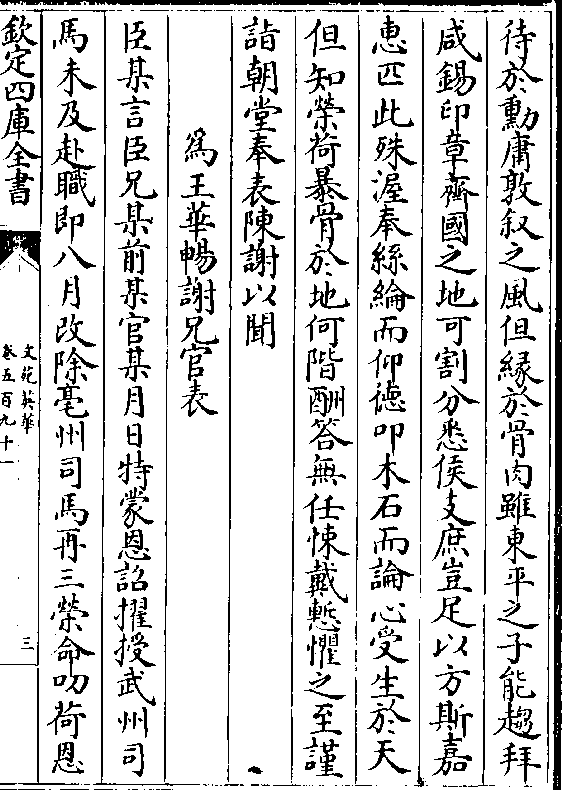 待於勲庸敦叙之風但縁於骨肉雖東平之子能趨拜
咸錫印章齊國之地可割分悉侯支庶豈足以方斯嘉
恵匹此殊渥奉絲綸而仰徳叩木石而論心受生於天
但知榮荷暴骨於地何階酬答無任悚戴慙懼之至謹
詣朝堂奉表陳謝以聞
為王華暢謝兄官表
臣某言臣兄某前某官某月日特蒙恩詔擢授武州司
馬未及赴職即八月改除亳州司馬再三榮命叨荷恩
欽定四庫全書
文苑英華
卷五百九十一
三